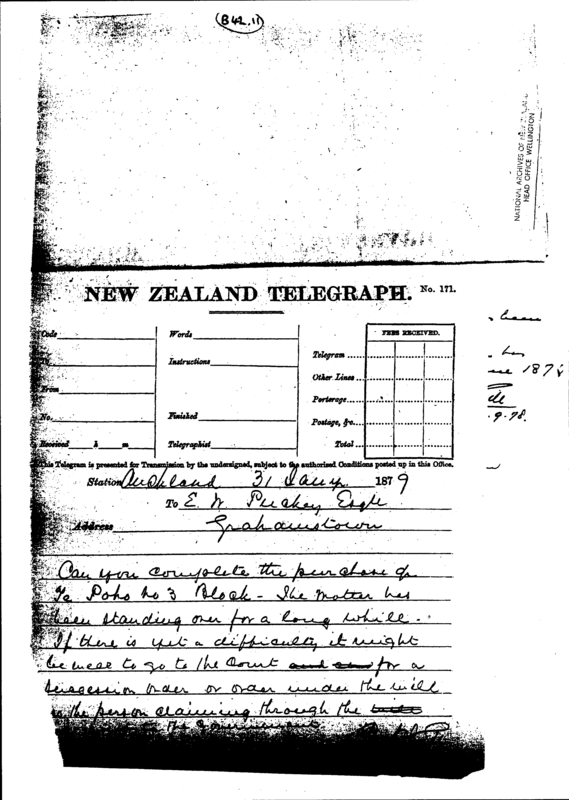 B42.11
NATIONAL ARCHIVES OF NEW ZEALAND
HEAD OFFICE WELLINGTON
NEW ZEALAND TELEGRAPH. No. 171.
Code
Words
FEES RECEIVED.
To
Instructions
Telegram
Other Lines
From
Porterage
No.
Finished
Postage, &c.
Received h m
Telegraphist
Total
This Telegram is presented for Transmission by the undersigned, subject to the authorised Conditions posted up in this Office.
Station Auckland 31 Jany 1879
To E W Puckey Esqre
Address Grahamstown
Can you complete the purchase of
Te Poho No 3 Block - The matter has
been standing over for a long while.
If there is yet a difficulty it might
be well to go to the Court for a
succession order or order under the will
to the person claiming through the
been
9.78.